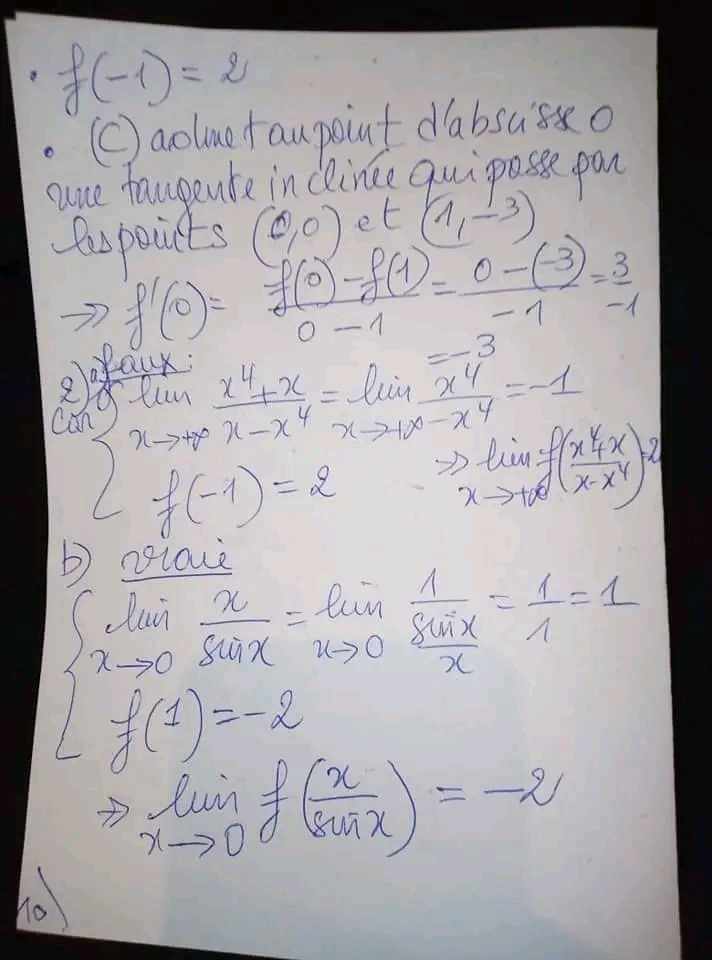 • f(-1) = 2
• (C) admet au point d'absisse 0
une tangente inclinée qui passe par
les points (0,0) et (1,-3)
→ f'(0) = \frac{f(0) - f(1)}{0 - 1} = \frac{0 - (-3)}{-1} = \frac{3}{-1}
= -3
2) a) faux :
Car { lim_{x→+∞} \frac{x^4+x}{x-x^4} = lim_{x→+∞} \frac{x^4}{-x^4} = -1
f(-1) = 2 ⇒ lim_{x→+∞} f(\frac{x^4+x}{x-x^4}) = 2
b) vraie
{ lim_{x→0} \frac{x}{sin x} = lim_{x→0} \frac{1}{\frac{sin x}{x}} = \frac{1}{1} = 1
f(1) = -2
⇒ lim_{x→0} f(\frac{x}{sin x}) = -2
10)